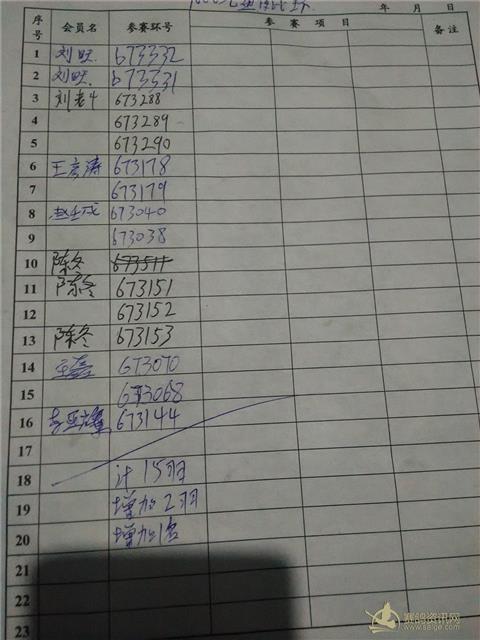 年 月 日
序号 会员名 参赛环号 参赛项目 备注
1 刘旺 673332
2 刘旺 673331
3 刘老4 673288
4 673289
5 673290
6 王彦涛 673178
7 673179
8 673040
9 673038
10 陈冬 673511
11 陈冬 673151
12 673152
13 陈冬 673153
14 673070
15 673068
16 673144
17
18 计15羽
19 增加2羽
20 增加1名
21
22
23
赛鸽资讯网
www.saige.com